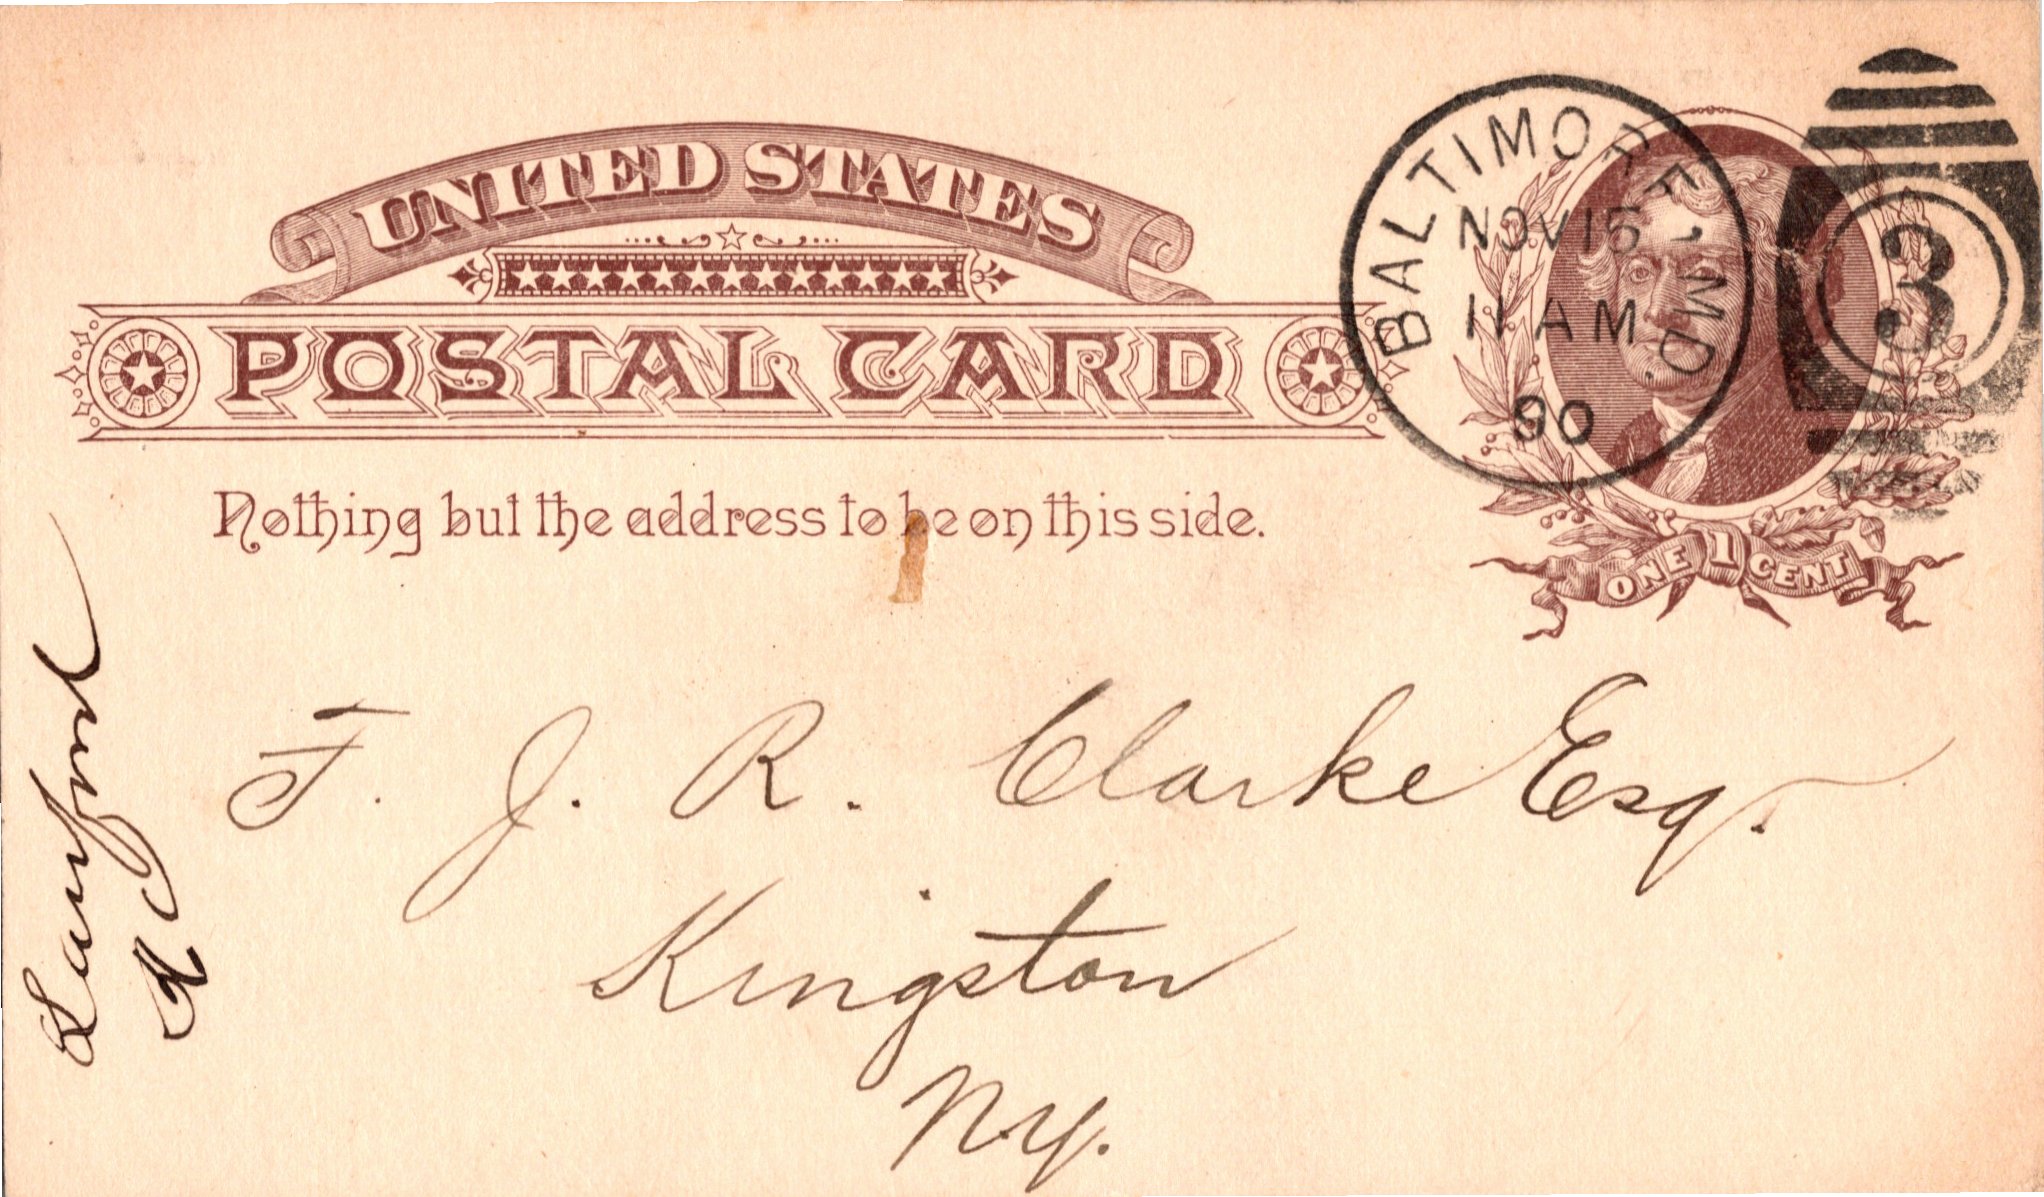 UNITED STATES
POSTAL CARD
Nothing but the address to be on this side.
BALTIMORE, MD.
NOV 15
11 AM
90
3
ONE 1 CENT
F. J. R. Clarke Esq.
Kingston
Ny.